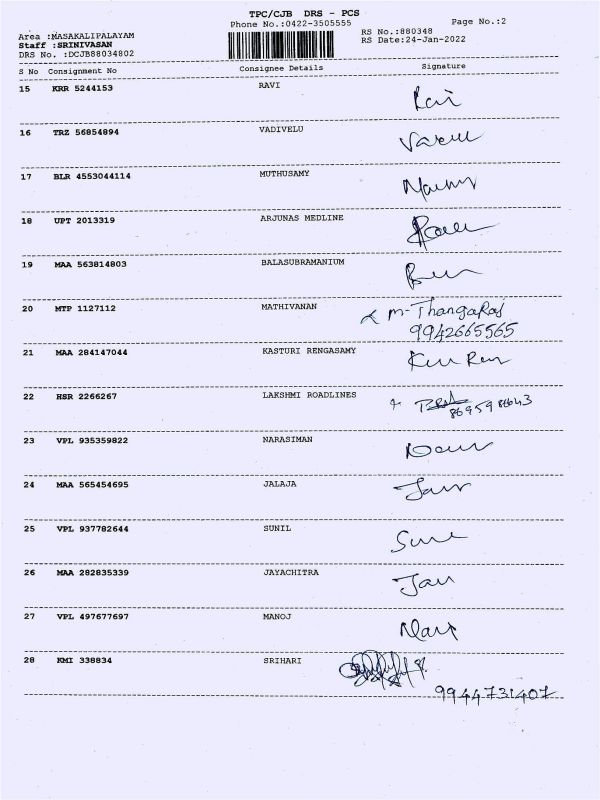 TPC/CJB DRS - PCS
Phone No.:0422-3505555
Page No.:2
Area :MASAKALIPALAYAM
RS No.:880348
Staff :SRINIVASAN
RS Date:24-Jan-2022
DRS No. :DCJB88034802
S No Consignment No Consignee Details Signature
15 KRR 5244153 RAVI Ravi
16 TRZ 56854894 VADIVELU
17 BLR 4553044114 MUTHUSAMY
18 UPT 2013319 ARJUNAS MEDLINE
19 MAA 563814803 BALASUBRAMANIUM
20 MTP 1127112 MATHIVANAN M-ThangaRaj
9942665565
21 MAA 284147044 KASTURI RENGASAMY
22 HSR 2266267 LAKSHMI ROADLINES
23 VPL 935359822 NARASIMAN
24 MAA 565454695 JALAJA
25 VPL 937782644 SUNIL
26 MAA 282835339 JAYACHITRA
27 VPL 497677697 MANOJ
28 KMI 338834 SRIHARI
9944731407